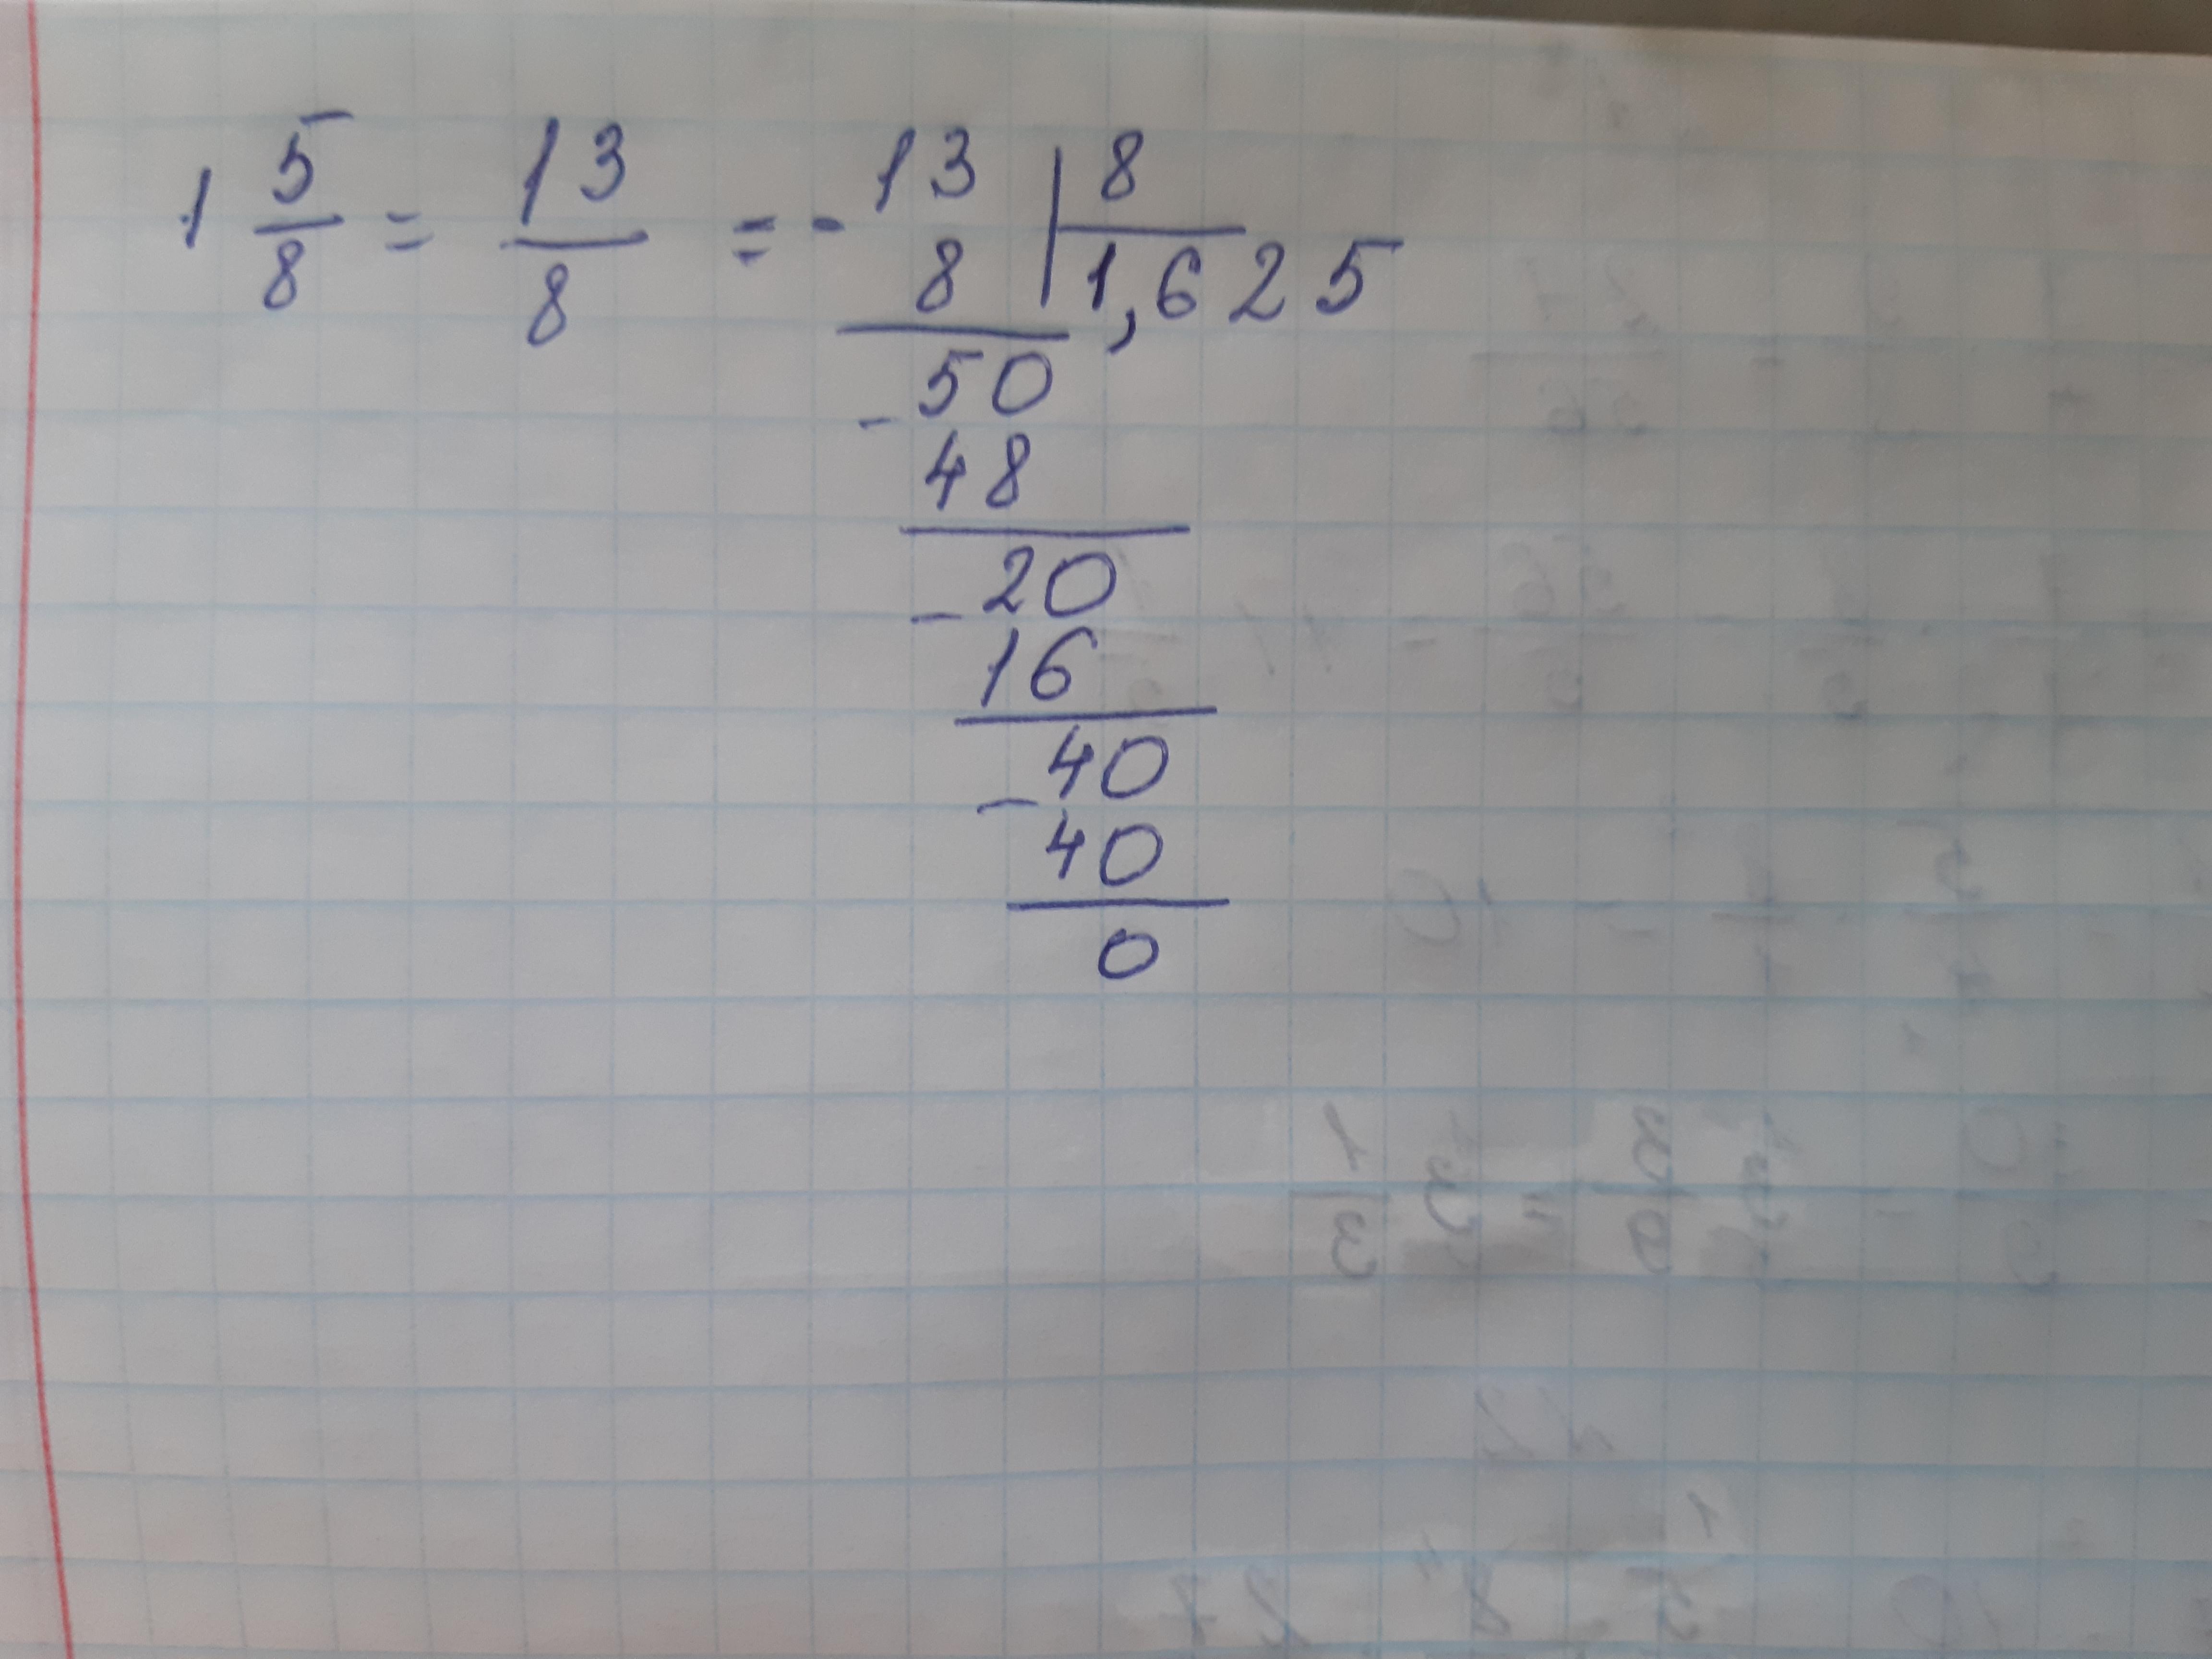 1 5/8 = 13/8 = - 13 | 8
8 | 1,625
- 50
48
- 20
16
- 40
40
0